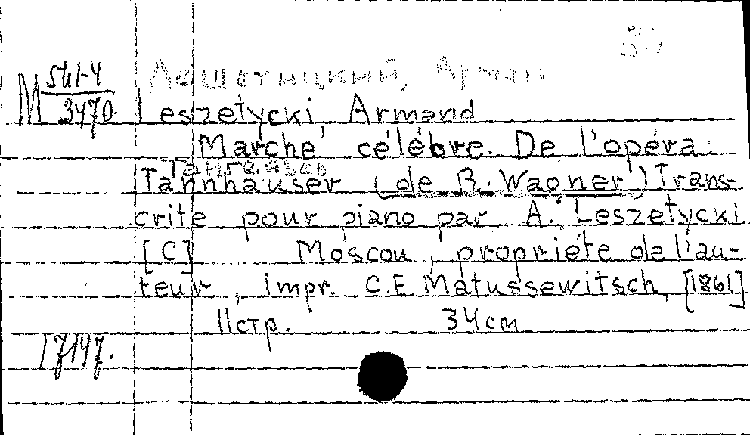 М 541-4
3470
Лешетицкий, Арман
Leszetycki Armand
Marche célèbre. De l'opéra:
Tannhäuser (de R. Wagner) Trans-
crite pour piano par A. Leszetycki
[C] Moscou, propriété de l'au-
teur, Impr. C.E. Matussewitsch, [1861]
11стр. 34см
17147.